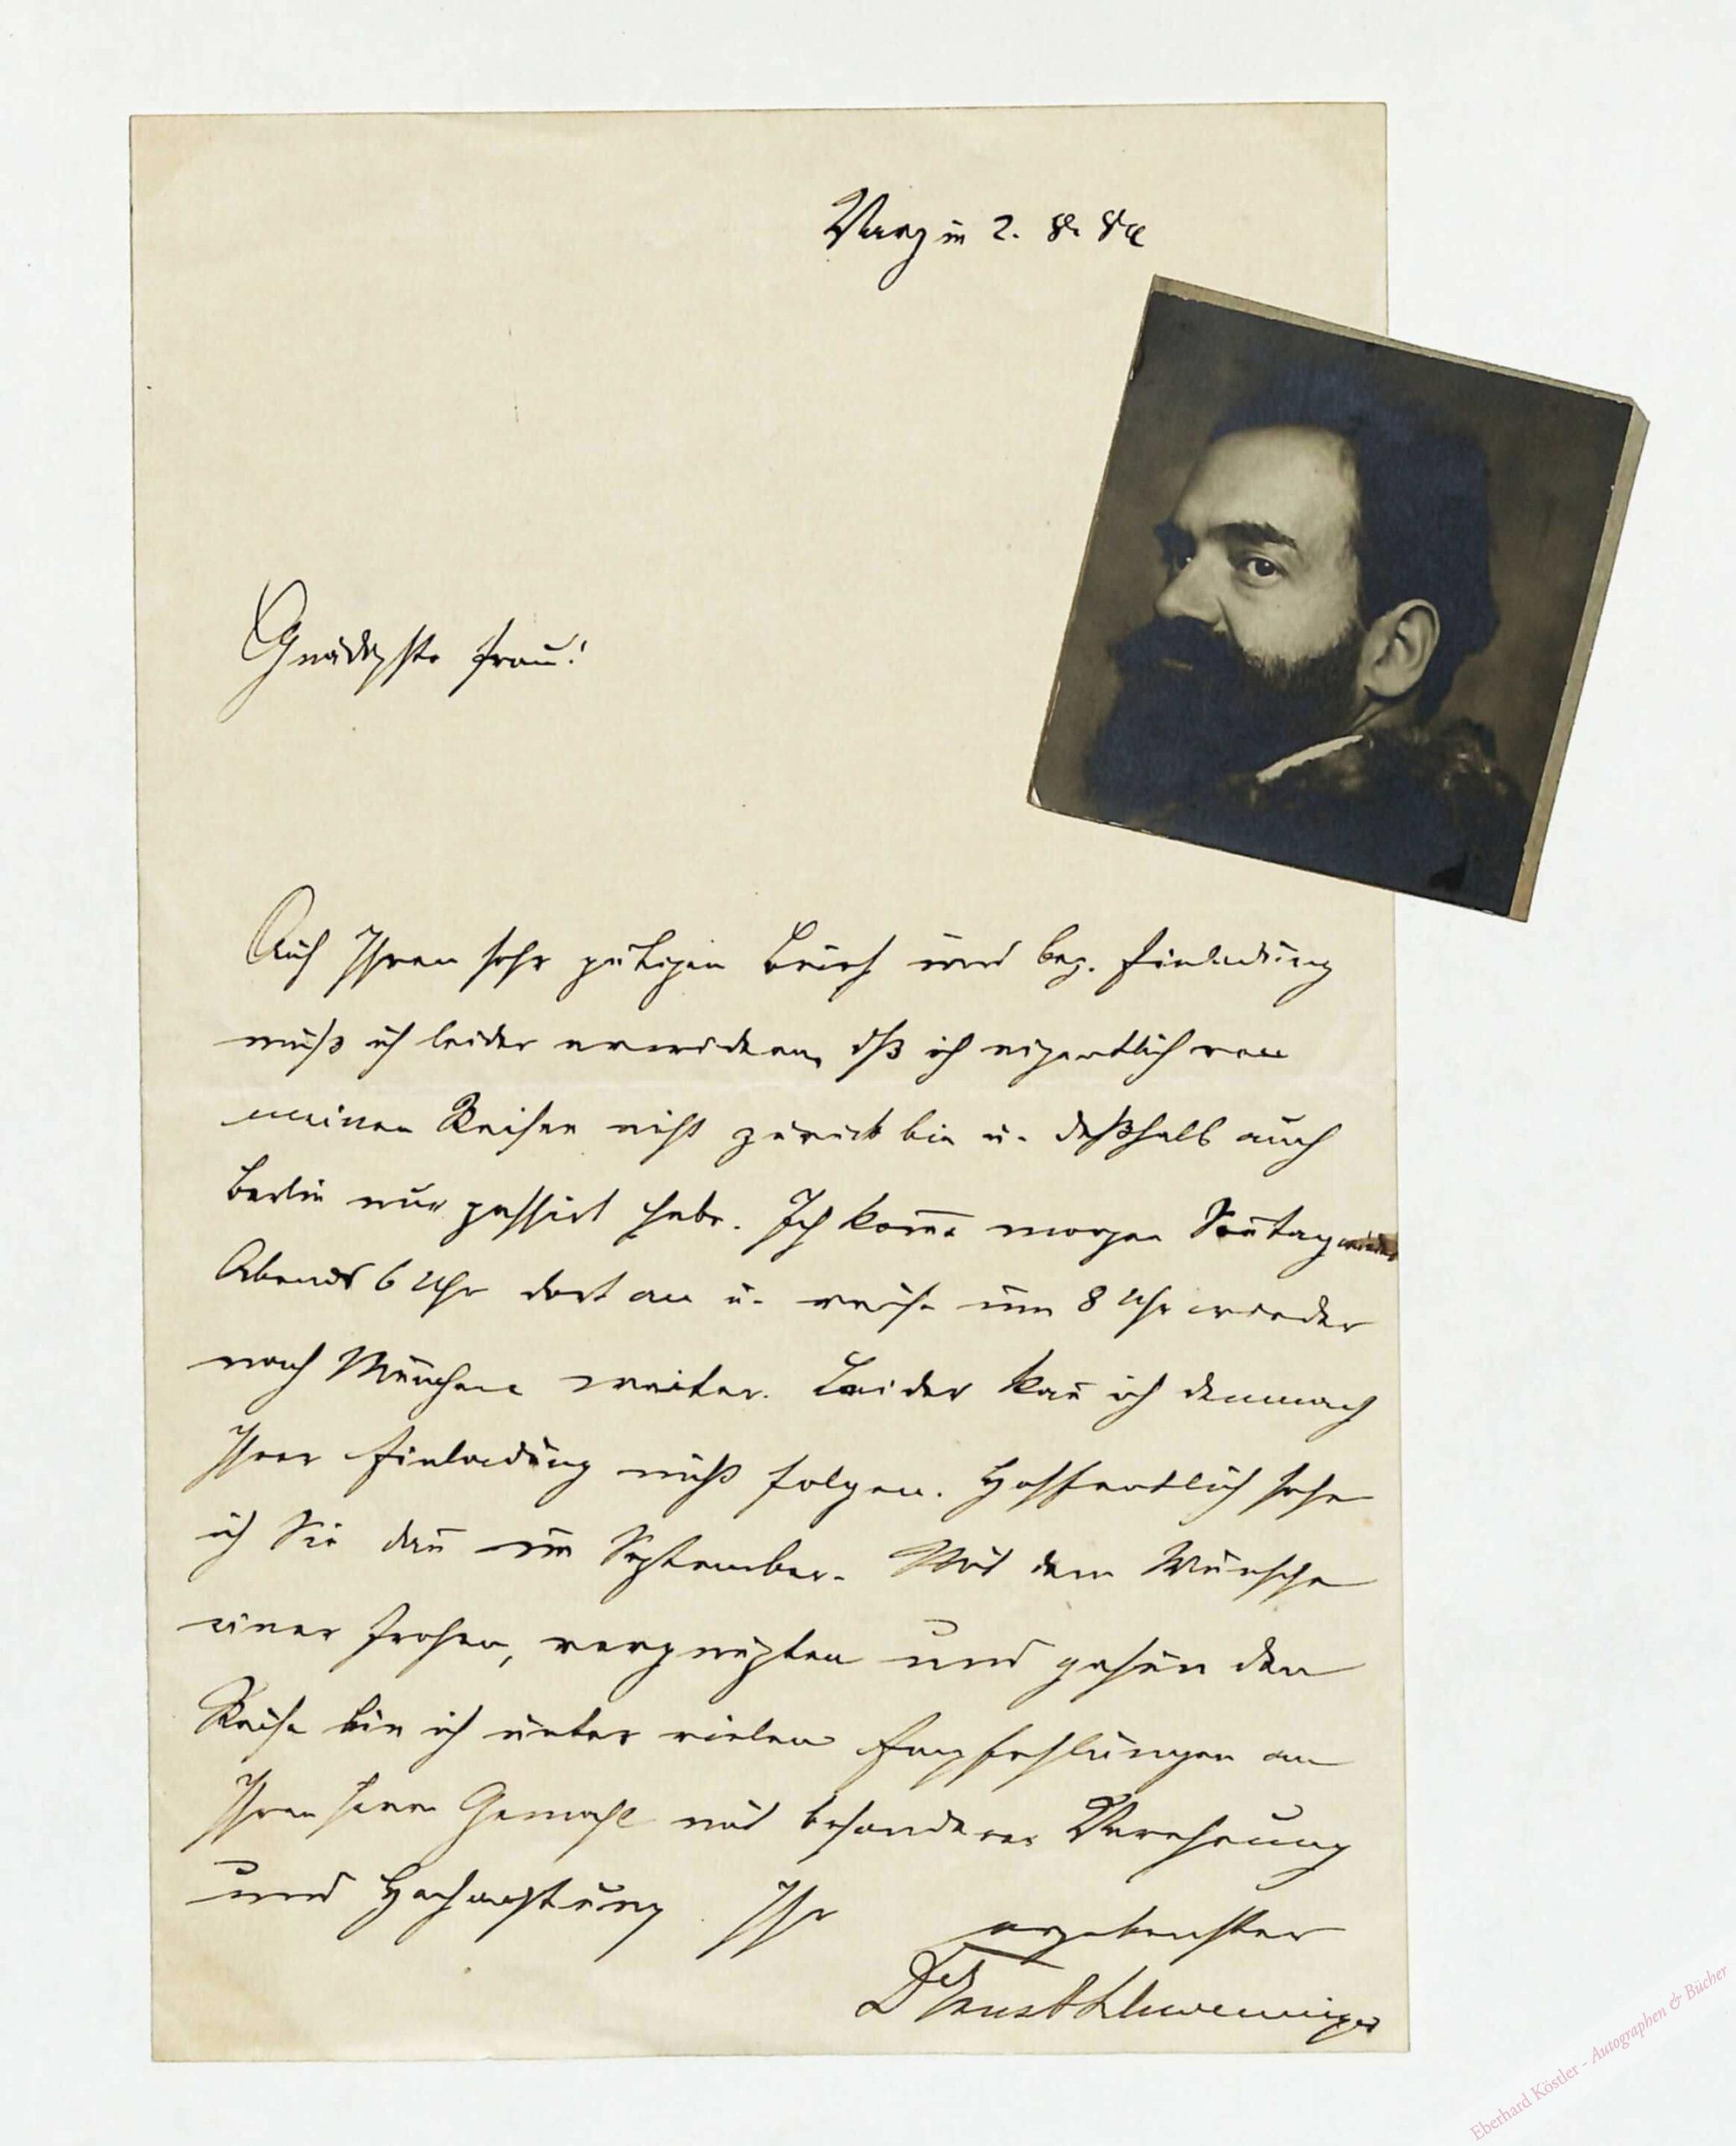 Varzin 2. 8. 84
Gnädigste Frau!
Auf Ihren sehr gütigen Brief und bez. Einladung
muß ich leider erwidern, dß ich eigentlich von
meinen Reisen nicht zurück bin u. deßhalb auch
Berlin nur passirt habe. Ich kom̄e morgen Son̄tag
Abends 6 Uhr dort an u. reise um 8 Uhr wieder
nach München weiter. Leider kan̄ ich demnach
Ihrer Einladung nicht folgen. Hoffentlich sehe
ich Sie dan̄ im September. Mit dem Wunsche
einer frohen, vergnügten und gesunden
Reise bin ich unter vielen Empfehlungen an
Ihren Herrn Gemahl mit besonderer Verehrung
und Hochachtung Ihr
ergebenster
Dr Ernst Schweninger
Eberhard Köstler - Autographen & Bücher